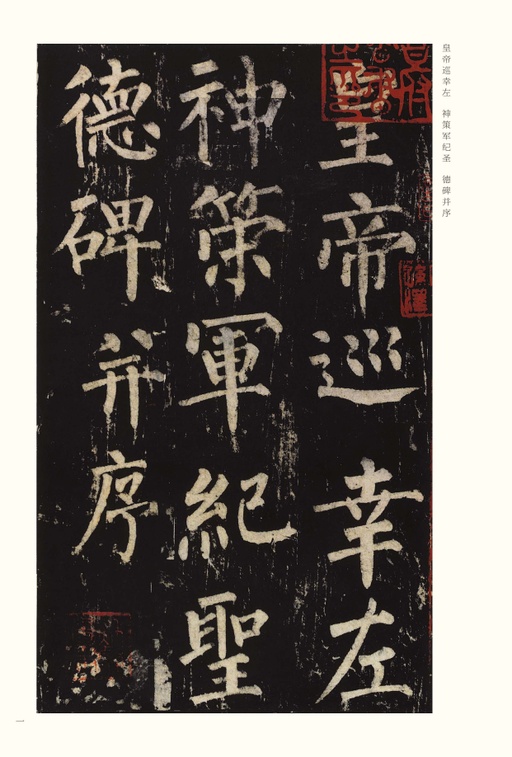 皇帝巡幸左
神策軍紀聖
德碑并序
皇帝巡幸左　神策军纪圣　德碑并序
一